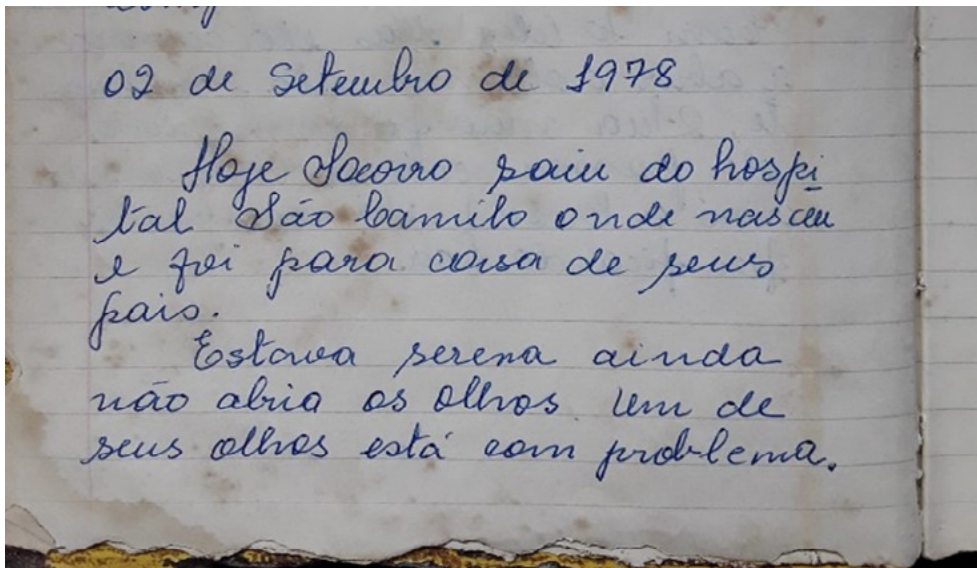 02 de Setembro de 1978
Hoje Socorro saiu do hospi
tal São Camilo onde nasceu
e foi para casa de seus
pais.
Estava serena ainda
não abria os olhos. Um de
seus olhos está com problema.